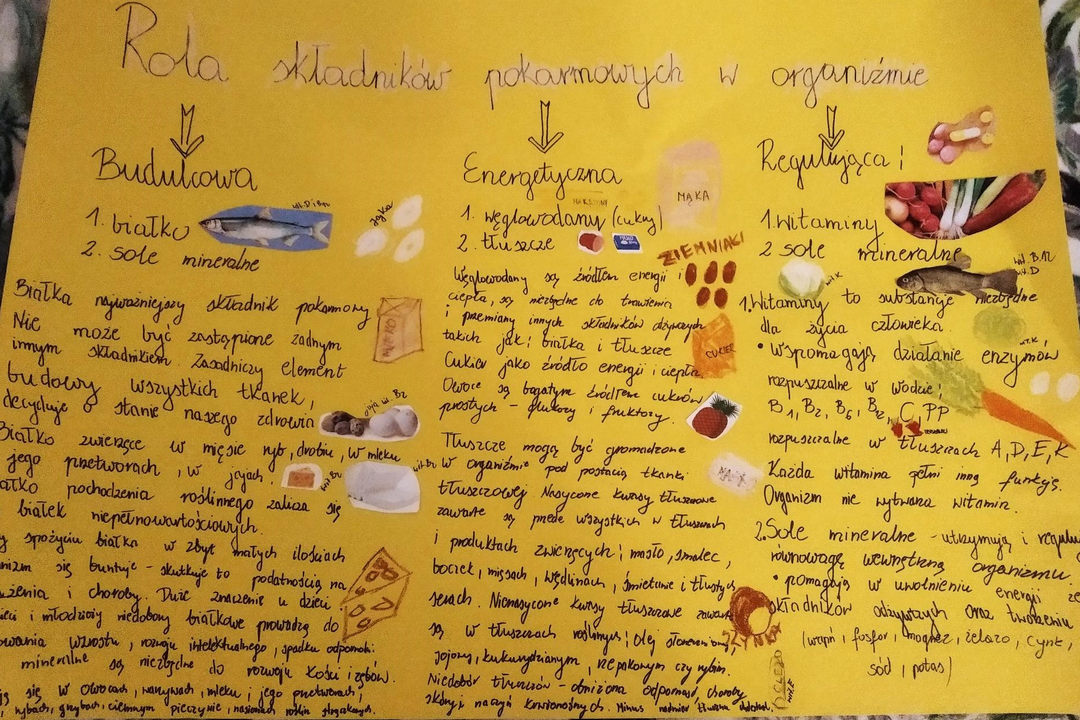 Rola składników pokarmowych w organiźmie
Budulcowa
1. białko
2. sole mineralne
wit. D i B12
jajka
Białka najważniejszy składnik pokarmowy
Nie może być zastąpione żadnym
innym składnikiem. Zasadniczy element
budowy wszystkich tkanek,
decyduje o stanie naszego zdrowia
Białko zwierzęce w mięsie ryb, drobiu, w mleku
jego przetworach, w jajach.
białko pochodzenia roślinnego zalicza się
białek niepełnowartościowych.
spożyciu białka w zbyt małych ilościach
się buntuje - skutkuje to podatnością na
i choroby. Duże znaczenie u dzieci
i młodzieży niedobory białkowe prowadzą do
wzrostu, rozwoju intelektualnego, spadku odporności
mineralne są niezbędne do rozwoju kości i zębów.
się w owocach, warzywach, mleku i jego przetworach,
rybach, grzybach, ciemnym pieczywie, nasionach roślin strączkowych.
Energetyczna
1. węglowodany (cukry)
2. tłuszcze
MĄKA
ZIEMNIAKI
Węglowodany są źródłem energii i
ciepła, są niezbędne do trawienia
i przemiany innych składników odżywczych
takich jak: białka i tłuszcze
CUKIER
Cukier jako źródło energii i ciepła.
Owoce są bogatym źródłem cukrów
prostych - glukozy i fruktozy.
Tłuszcze mogą być gromadzone
w organiźmie pod postacią tkanki
tłuszczowej. Nasycone kwasy tłuszczowe
zawarte są przede wszystkich w tłuszczach
i produktach zwierzęcych: masło, smalec,
boczek, mięsach, wędlinach, śmietanie i tłustych
serach. Nienasycone kwasy tłuszczowe zawarte
są w tłuszczach roślinnych: olej słonecznikowy
SZYNKA
sojowy, kukurydzianym, rzepakowym czy rybim.
Niedobór tłuszczów - obniżona odporność, choroby
skóry i naczyń krwionośnych. Minus nadmiar tłuszczu
Regulująca:
1. Witaminy
2 sole mineralne
wit. B12
wit. D
wit. K
1. Witaminy to substancje niezbędne
dla życia człowieka.
• wspomagają działanie enzymów
wit. K
rozpuszczalne w wodzie:
B1, B2, B6, B12, C, PP
rozpuszczalne w tłuszczach A, D, E, K
Każda witamina pełni inną funkcję.
Organizm nie wytwarza witamin.
2. Sole mineralne - utrzymują i regulują
równowagę wewnętrzną organizmu.
• pomagają w uwolnieniu energii ze
składników odżywczych oraz tworzeniu
(wapń, fosfor, magnez, żelazo, cynk,
sód, potas)